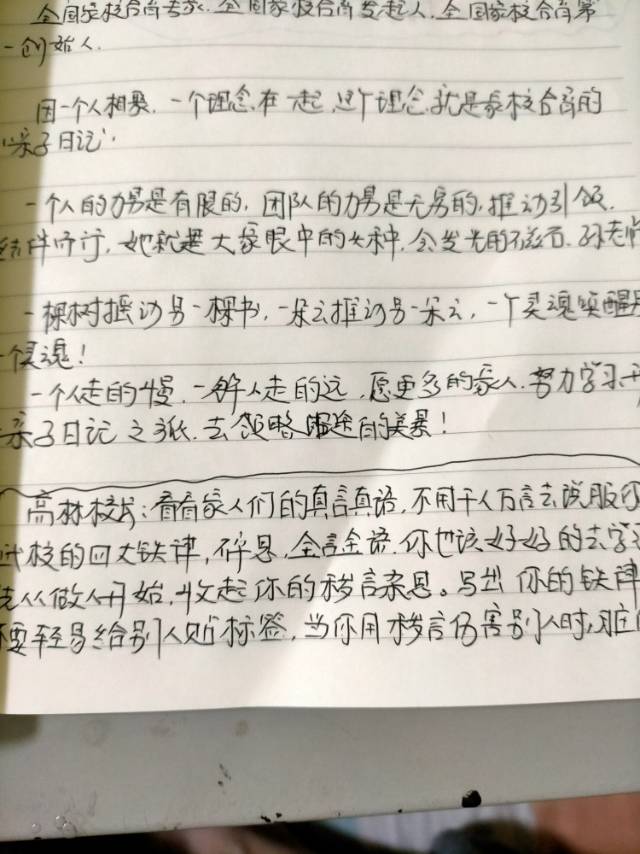 全国家校合育专家.全国家校合育发起人.全国家校合育第
一创始人.
因一个人相聚.一个理念.在一起,这个理念.就是家校合育的
“亲子日记”.
一个人的力量是有限的,团队的力量是无穷的,推动引领.
她就是大家眼中的女神.会发光的磁石.孙老师
一棵树摇动另一棵书,一朵云推动另一朵云,一个灵魂唤醒另
一个灵魂!
一个人走的慢.一群人走的远,愿更多的家人.努力学习开
亲子日记之旅.去领略沿途的美景!
高林校长:看看家人们的真言真语,不用千人万言去说服你
校的四大铁律,碎思,金言金语.你也该好好的去学习
先从做人开始,收起你的秽言杂思。写出你的铁律
不要轻易给别人贴标签,当你用秽言伤害别人时,